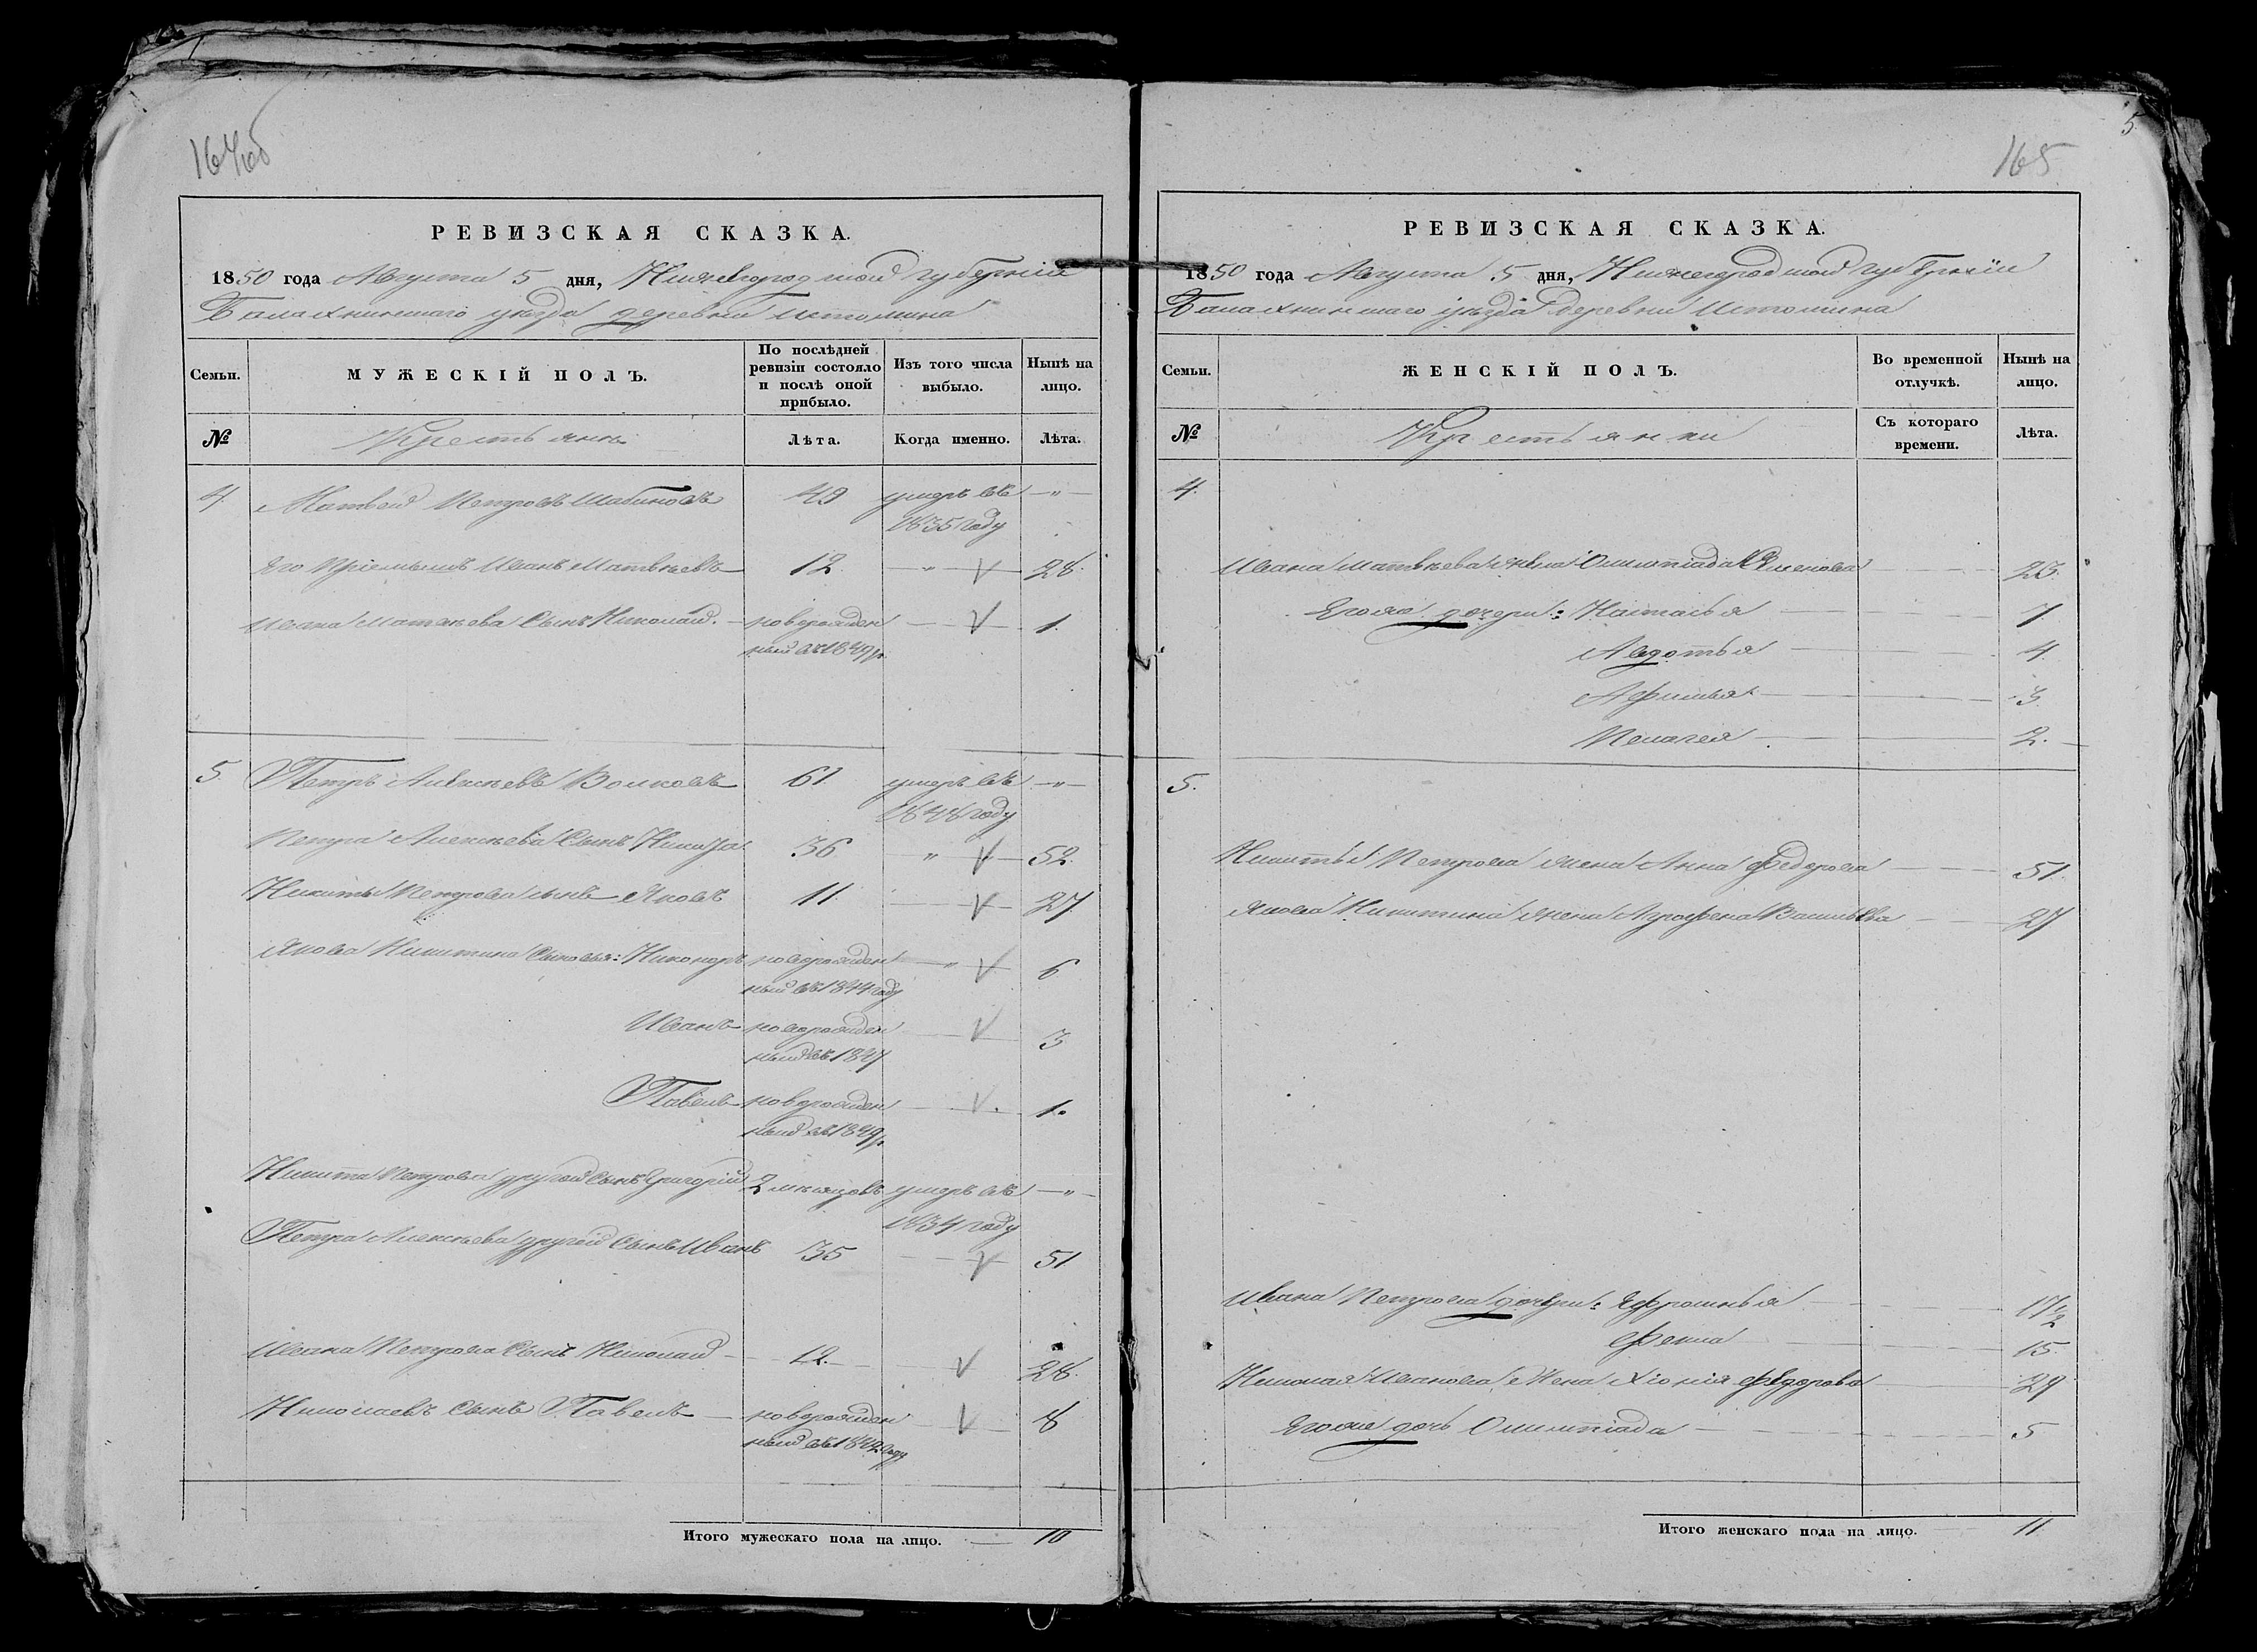 164об
РЕВИЗСКАЯ СКАЗКА.
1850 года Августа 5 дня, Нижегородской губерніи
Балахнинскаго уѣзда деревни Истомина
Семьи.
МУЖЕСКІЙ ПОЛЪ.
По послѣдней ревизіи состояло и послѣ оной прибыло.
Изъ того числа выбыло.
Нынѣ на лицо.
№
Крестьяне
Лѣта.
Когда именно.
Лѣта.
4. Матвей Петровъ Шабиновъ 49 умеръ въ — " —
1835 году
Его пріемышъ Иванъ Матвѣевъ 12. — " — V 28.
Ивана Матвѣева сынъ Николай. новорожден V 1.
ный въ 1849 г.
5. Петръ Алексѣевъ Волковъ 61 умеръ въ — " —
1848 году
Петра Алексѣева сынъ Никита 36 " V 52.
Никиты Петрова сынъ Яковъ 11. V 27.
Якова Никитина сыновья: Никаноръ новорожден " V 6
ный въ 1844 году
Иванъ новорожден V 3
ный въ 1847
Павелъ новорожден V. 1.
ный въ 1849 г.
Никита Петрова другой сынъ Григорій 2 мѣсяцовъ умеръ въ — " —
1834 году
Петра Алексѣева другой сынъ Иванъ 35 V 51.
Ивана Петрова сынъ Николай 12. V 28.
Николаевъ сынъ Павелъ новорожден V 8
ный въ 1842 году
Итого мужескаго пола на лицо. 10
5
165
РЕВИЗСКАЯ СКАЗКА.
1850 года Августа 5 дня, Нижегородской губерніи
Балахнинскаго уѣзда деревни Истомина
Семьи.
ЖЕНСКІЙ ПОЛЪ.
Во временной отлучкѣ.
Нынѣ на лицо.
№
Крестьянки
Съ котораго времени.
Лѣта.
4.
Ивана Матвѣева жена Олимпіада Семенова 23.
Егоже дочери: Наталья 7
Авдотья 4.
Афимья 3
Пелагея 2.
5.
Никиты Петрова жена Анна Федорова 51.
Якова Никитина жена Аграфена Васильева 27
Ивана Петрова дочери: Ефросинья 17½
Фекла 15.
Николая Иванова жена Хіонія Федорова 29
Егоже дочь Олимпіада 5
Итого женскаго пола на лицо. 11